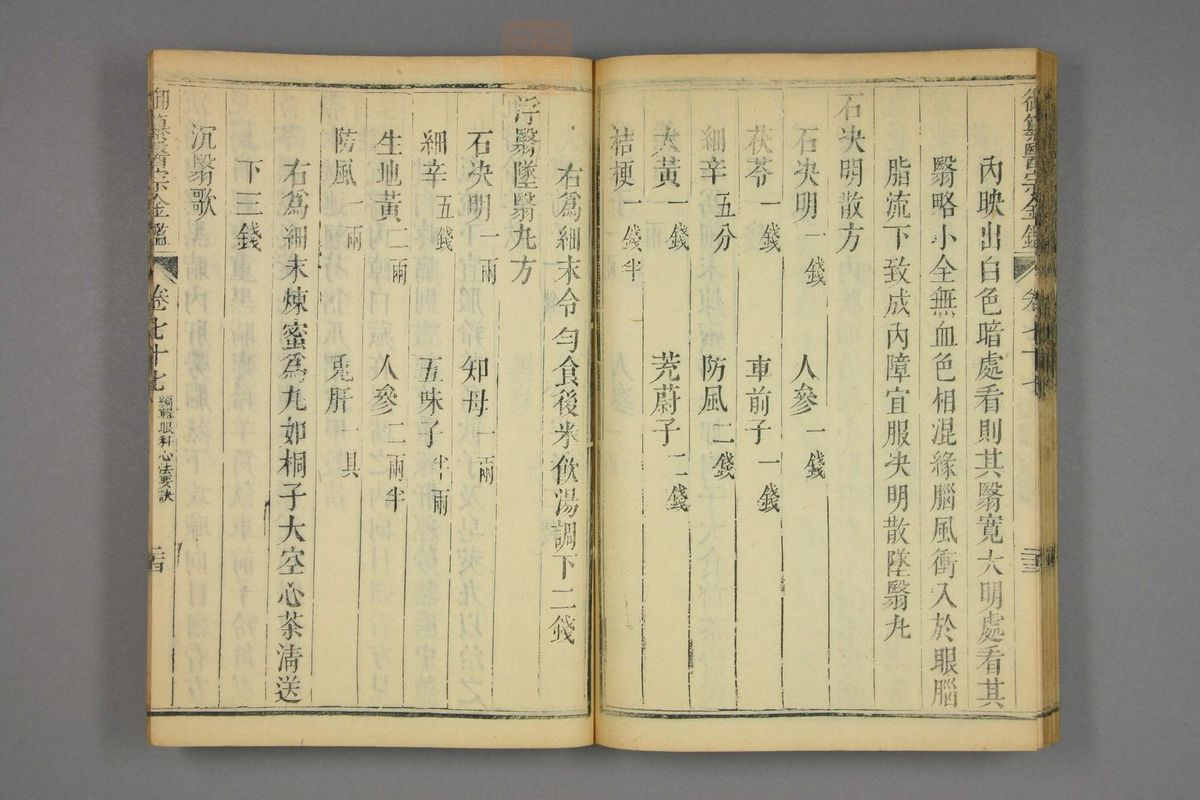 御纂醫宗金鑑
卷七十七
二十三
內映出白色暗處看則其翳寬大明處看其
翳略小全無血色相混緣腦風衝入於眼腦
脂流下致成內障宜服決明散墜翳丸
石決明散方
石決明一錢 人參一錢
茯苓一錢 車前子一錢
細辛五分 防風二錢
大黃一錢 茺蔚子二錢
桔梗一錢半
右爲細末令勻食後米飲湯調下二錢
浮翳墜翳丸方
石決明一兩 知母一兩
細辛五錢 五味子半兩
生地黃二兩 人參二兩半
防風一兩 兎肝一具
右爲細末煉蜜爲丸如桐子大空心茶淸送
下三錢
沉翳歌
御纂醫宗金鑑
卷七十七
編輯眼科心法要訣
二十四